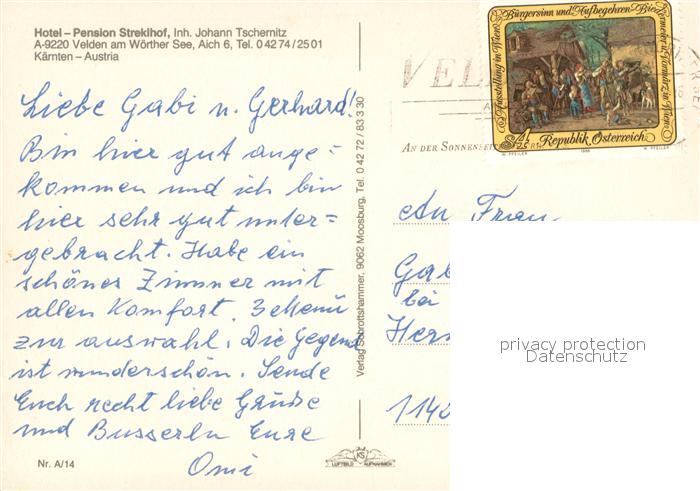 Hotel – Pension Streklhof, Inh. Johann Tschernitz
A-9220 Velden am Wörther See, Aich 6, Tel. 0 42 74 / 25 01
Kärnten – Austria
Liebe Gabi u. Gerhard!
Bin hier gut ange=
kommen und ich bin
hier sehr gut unter-
gebracht. Habe ein
schönes Zimmer mit
allen Komfort. 3 Menü
zur auswahl. Die Gegend
ist wunderschön. Sende
Euch recht liebe Grüße
und Busserln Eure
Omi
Nr. A/14
Verlag Schrottshammer, 9062 Moosburg, Tel. 0 42 72 / 83 3 30
LUFTBILD AUFNAHMEN
VEL
AN DER SONNENSEITE
Ausstellung in Wien Bürgersinn und Aufbegehren Biedermeier u. Vormärz in Wien
S 4/25 Republik Österreich
W. PFEILER 1988 W. PFEILER
An Frau
Gab
bei
Her
1142
privacy protection
Datenschutz